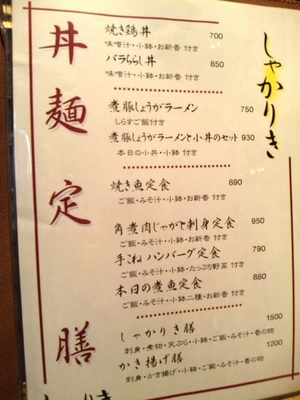 しゃかりき
丼
焼き鶏丼 700
味噌汁・小鉢・お新香 付き
バラちらし丼 850
味噌汁・小鉢・お新香 付き
麺
煮豚しょうがラーメン 750
しらすご飯付き
煮豚しょうがラーメンと小丼のセット 930
本日の小丼・小鉢 付き
定
焼き魚定食 890
ご飯・みそ汁・小鉢・お新香 付き
角煮肉じゃがと刺身定食 950
ご飯・みそ汁・小鉢・お新香 付き
手こねハンバーグ定食 790
ご飯・みそ汁・小鉢・たっぷり野菜 付き
本日の煮魚定食 880
ご飯・みそ汁・小鉢二種・お新香 付き
膳
しゃかりき膳 1500
刺身・煮物・天ぷら・小鉢・ご飯・みそ汁・香の物
かき揚げ膳 1200
刺身・かき揚げ・小鉢・ご飯・みそ汁・香の物